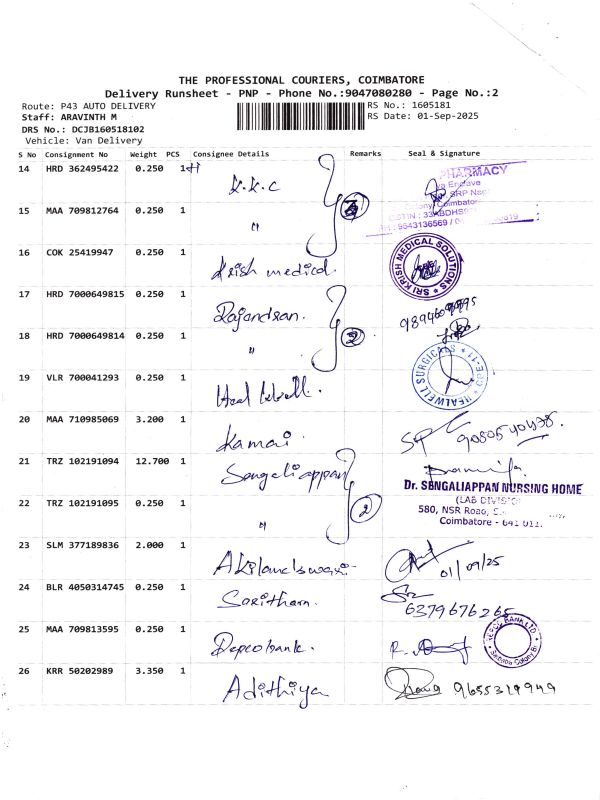 THE PROFESSIONAL COURIERS, COIMBATORE
Delivery Runsheet - PNP - Phone No.:9047080280 - Page No.:2
Route: P43 AUTO DELIVERY RS No.: 1605181
Staff: ARAVINTH M RS Date: 01-Sep-2025
DRS No.: DCJB160518102
Vehicle: Van Delivery
S No Consignment No Weight PCS Consignee Details Remarks Seal & Signature
14 HRD 362495422 0.250 1 K.K.C PHARMACY
15 MAA 709812764 0.250 1 "
16 COK 25419947 0.250 1 Krish medical. SRI KRISH MEDICAL SOLUTIONS
17 HRD 7000649815 0.250 1 Rajandran.
18 HRD 7000649814 0.250 1 " 2
19 VLR 700041293 0.250 1 HEALWELL SURGICALS CBE-11
20 MAA 710985069 3.200 1 Kamai 9080540438.
21 TRZ 102191094 12.700 1 Sengaliappan
Dr. SENGALIAPPAN NURSING HOME
(LAB DIVISION)
22 TRZ 102191095 0.250 1 " 2 580, NSR Road,
Coimbatore - 641 011.
23 SLM 377189836 2.000 1 Akilandswari 01/09/25
24 BLR 4050314745 0.250 1 Saritham. 6379676265
25 MAA 709813595 0.250 1 Repco bank. REPCO BANK LTD
26 KRR 50202989 3.350 1 Adithiya 9655319949